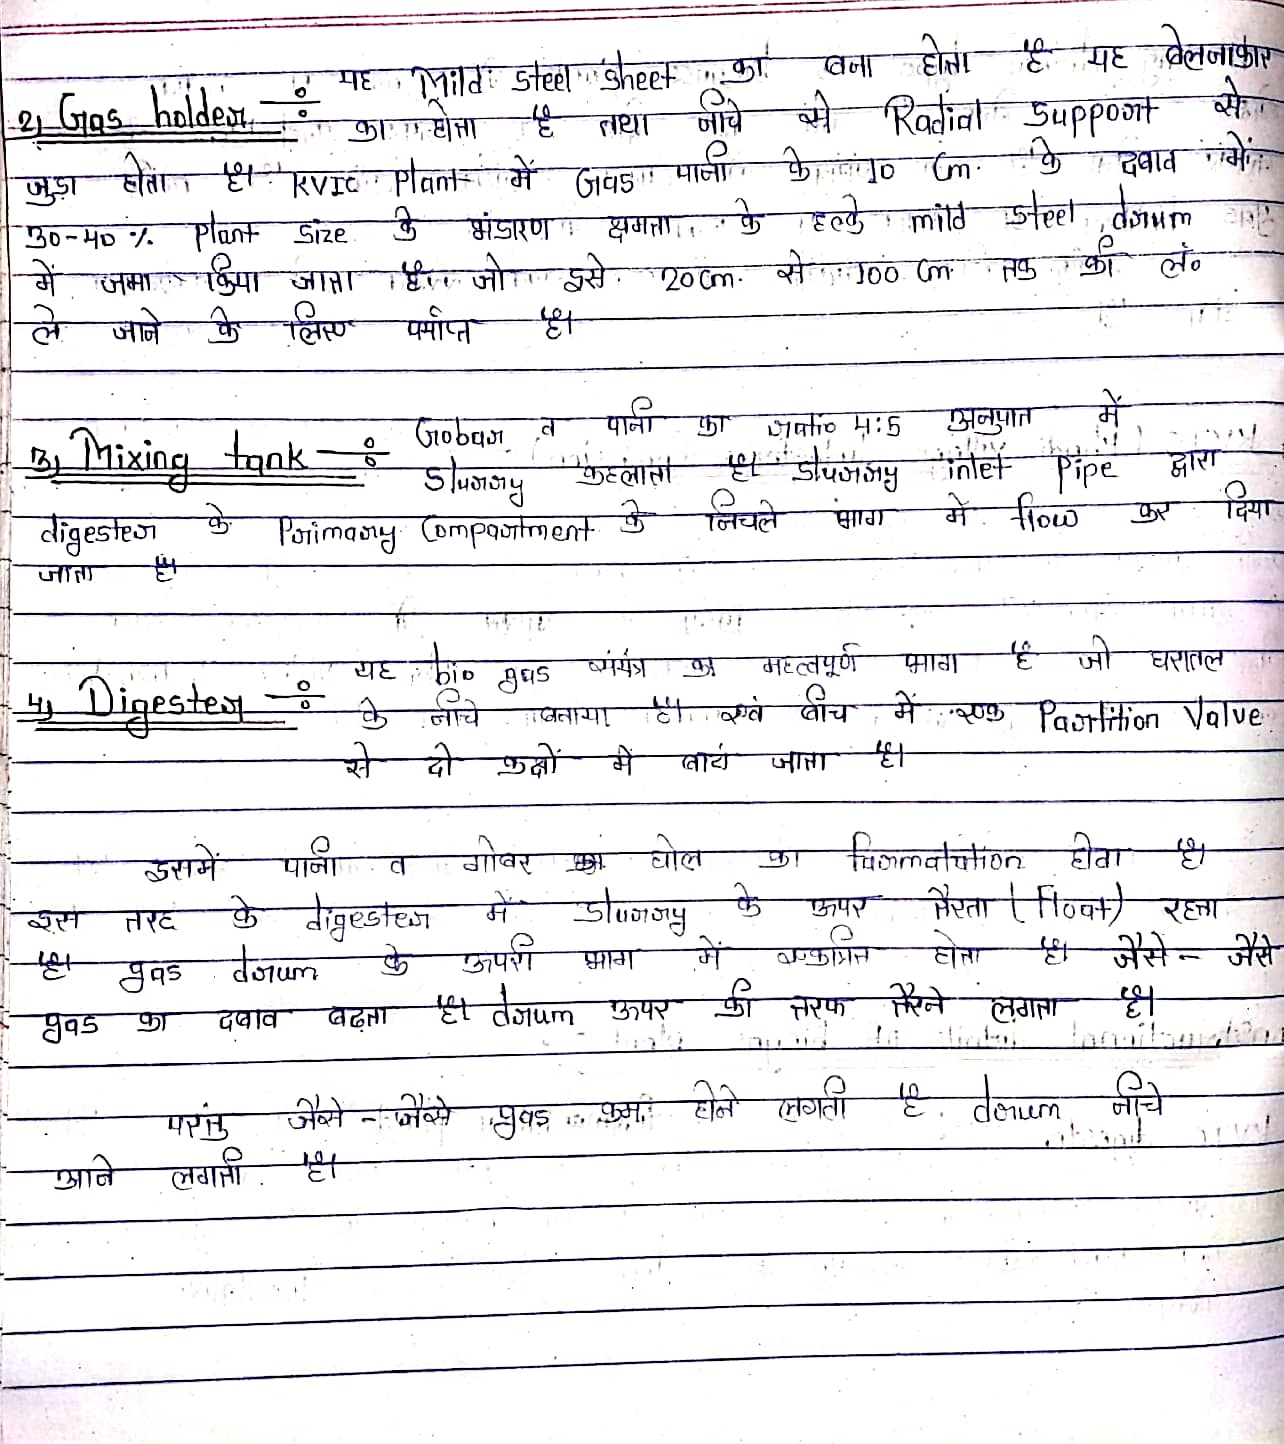 यह Mild steel sheet का बना होता है यह बेलनाकार
2) Gas holder ÷ का होता है तथा नीचे से Radial support से
जुड़ा होता है। KVIC Plant में Gas पानी के 10 Cm. के दबाव में
30-40 % Plant size के भंडारण क्षमता के हल्के mild steel drum
में जमा किया जाता है जो इसे 20cm. से 100 Cm तक की लं०
ले जाने के लिए पर्याप्त है।
Gobar व पानी का ratio 4:5 अनुपात में
3) Mixing tank ÷ Slurry कहलाता है। Slurry inlet Pipe द्वारा
digester के Primary Compartment के निचले भाग में flow कर दिया
जाता है।
यह bio gas संयंत्र का महत्वपूर्ण भाग है जो धरातल
4) Digester ÷ के नीचे बनाया है। एवं बीच में एक Partition Valve
से दो कक्षों में बाटां जाता है।
इसमें पानी व गोबर का घोल का होता है।
इस तरह के digester में Slurry के ऊपर तैरता (Float) रहता
है। gas drum के ऊपरी भाग में एकत्रित होता है। जैसे - जैसे
gas का दबाव बढ़ता है। drum ऊपर की तरफ तैरने लगता है।
परंतु जैसे - जैसे gas कम होने लगती है drum नीचे
आने लगती है।